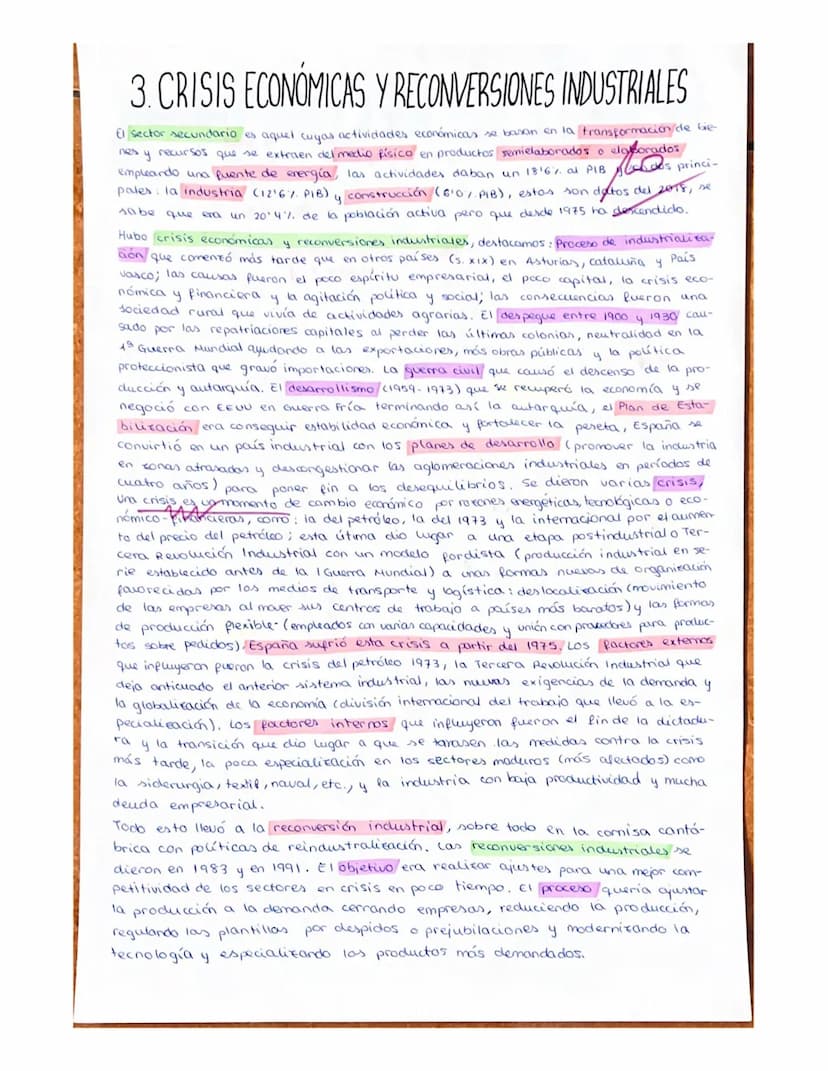 3. CRISIS ECONÓMICAS Y RECONVERSIONES INDUSTRIALES
El sector secundario es aquel cuyas actividades económicas se basan en la transformación de bie-
nes y recursos que se extraen del medio físico en productos semielaborados o elaborados
empleando una fuente de energía, las actividades daban un 18'6% al PIB princi-
pales: la industria (12'6% PIB) y construcción (6'0% PIB), estos son datos del 2018, se
sabe que era un 20'4% de la población activa pero que desde 1975 ha descendido.
Hubo crisis económicas y reconversiones industriales, destacamos: Proceso de industrializa-
ción que comenzó más tarde que en otros países (s. XIX) en Asturias, Cataluña y País
Vasco; las causas fueron el poco espíritu empresarial, el poco capital, la crisis eco-
nómica y financiera y la agitación política y social; las consecuencias fueron una
sociedad rural que vivía de actividades agrarias. El despegue entre 1900 y 1930 cau-
sado por las repatriaciones capitales al perder las últimas colonias, neutralidad en la
1ª Guerra Mundial ayudando a las exportaciones, más obras públicas y la política
proteccionista que gravó importaciones. La guerra civil que causó el descenso de la pro-
ducción y autarquía. El desarrollismo (1959-1973) que se recuperó la economía y se
negoció con EEUU en Guerra Fría terminando así la autarquía, el Plan de Esta-
bilización era conseguir estabilidad económica y fortalecer la peseta, España se
convirtió en un país industrial con los planes de desarrollo (promover la industria
en zonas atrasadas y descongestionar las aglomeraciones industriales en períodos de
cuatro años) para poner fin a los desequilibrios. Se dieron varias crisis,
una crisis es un momento de cambio económico por razones energéticas, tecnológicas o eco-
nómico-financieras, como: la del petróleo, la del 1973 y la internacional por el aumen-
to del precio del petróleo; esta útima dio lugar a una etapa postindustrial o Ter-
cera Revolución Industrial con un modelo fordista (producción industrial en se-
rie establecido antes de la I Guerra Mundial) a unas formas nuevas de organización
favorecidas por los medios de transporte y logística: deslocalización (movimiento
de las empresas al mover sus centros de trabajo a países más baratos) y las formas
de producción flexible (empleados con varias capacidades y unión con proveedores para produc-
tos sobre pedidos). España sufrió esta crisis a partir del 1975. Los factores externos
que influyeron fueron la crisis del petróleo 1973, la Tercera Revolución Industrial que
dejo anticuado el anterior sistema industrial, las nuevas exigencias de la demanda y
la globalización de la economía (división internacional del trabajo que llevó a la es-
pecialización). Los factores internos que influyeron fueron el fin de la dictadu-
ra y la transición que dio lugar a que se tomasen las medidas contra la crisis
más tarde, la poca especialización en los sectores maduros (más afectados) como
la siderurgia, textil, naval, etc., y la industria con baja productividad y mucha
deuda empresarial.
Todo esto llevó a la reconversión industrial, sobre todo en la cornisa cantá-
brica con políticas de reindustralización. Las reconversiones industriales se
dieron en 1983 y en 1991. El objetivo era realizar ajustes para una mejor com-
petitividad de los sectores en crisis en poco tiempo. El proceso quería ajustar
la producción a la demanda cerrando empresas, reduciendo la producción,
regulando las plantillas por despidos o prejubilaciones y modernizando la
tecnología y especializando los productos más demandados.